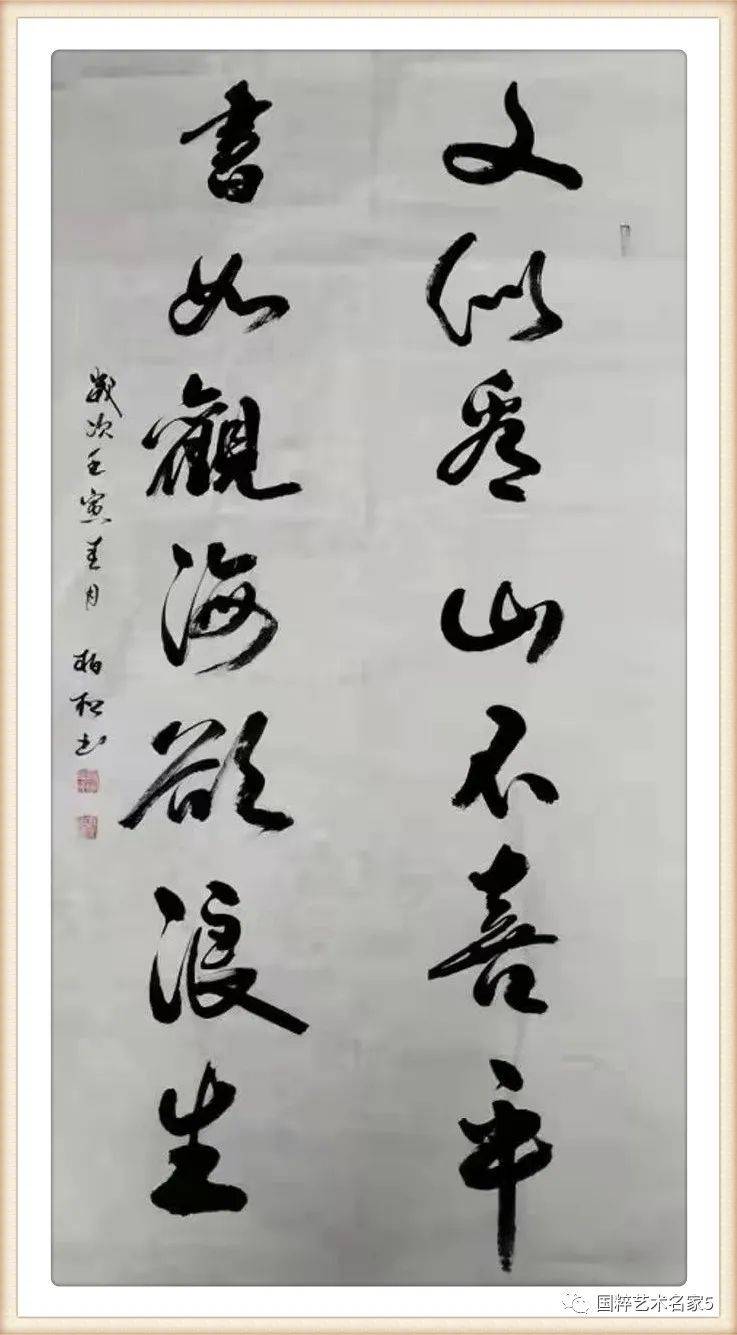 文似看山不喜平
書如觀海欲浪生
歲次壬寅春月
柏松书
国粹艺术名家5